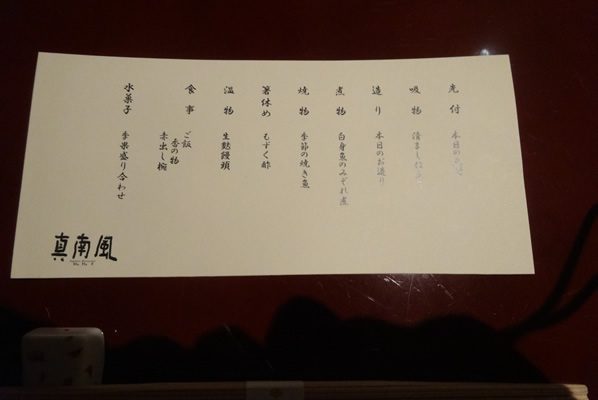 先付
本日の
吸物
清まし仕立
造り
本日のお造り
煮物
白身魚のみぞれ煮
焼物
季節の焼き魚
箸休め
もずく酢
温物
生麩饅頭
食事
ご飯
香の物
赤出し椀
水菓子
季果盛り合わせ
真南風